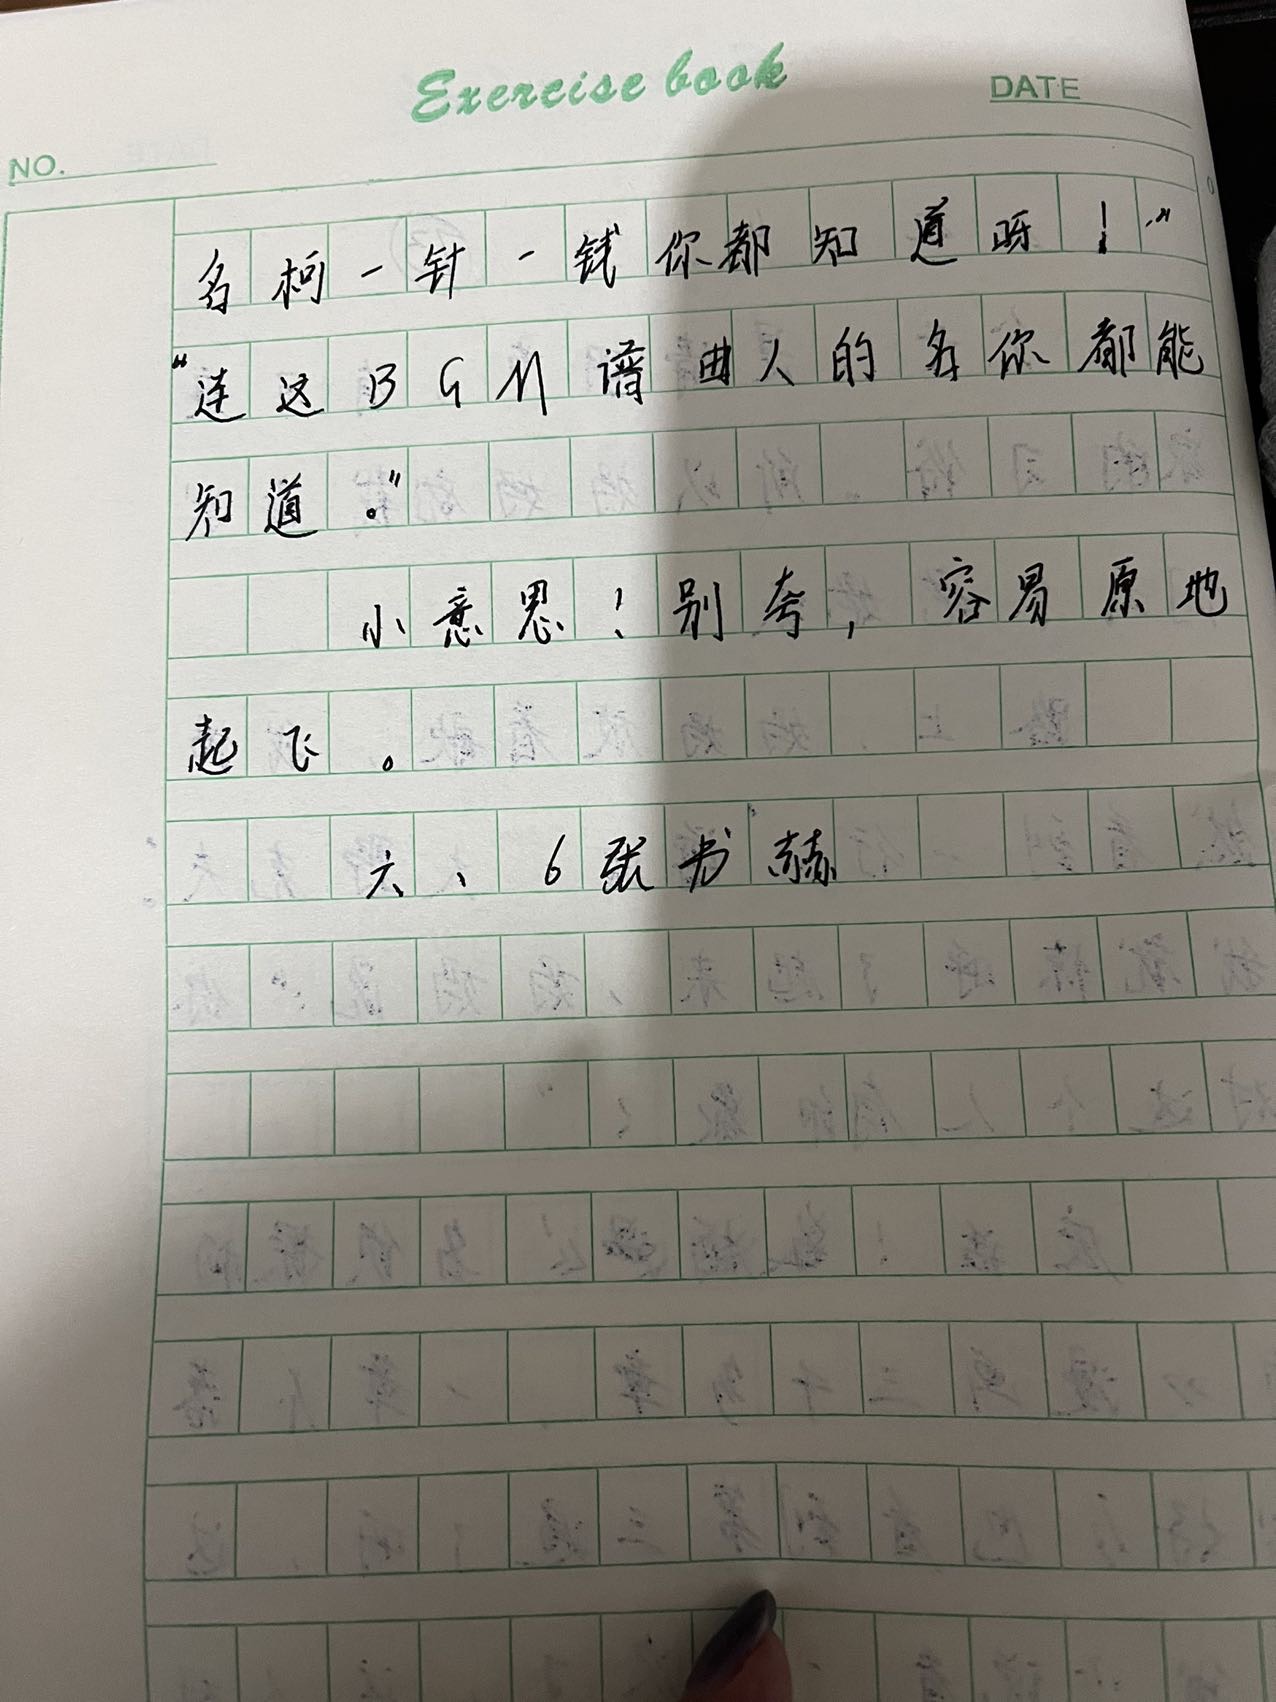 Exercise book
DATE
NO.
名柯一针一钱你都知道呀！”
“连这BGM谱曲人的名你都能
知道。”
小意思！别夸，容易原地
起飞。
六、6张书赫